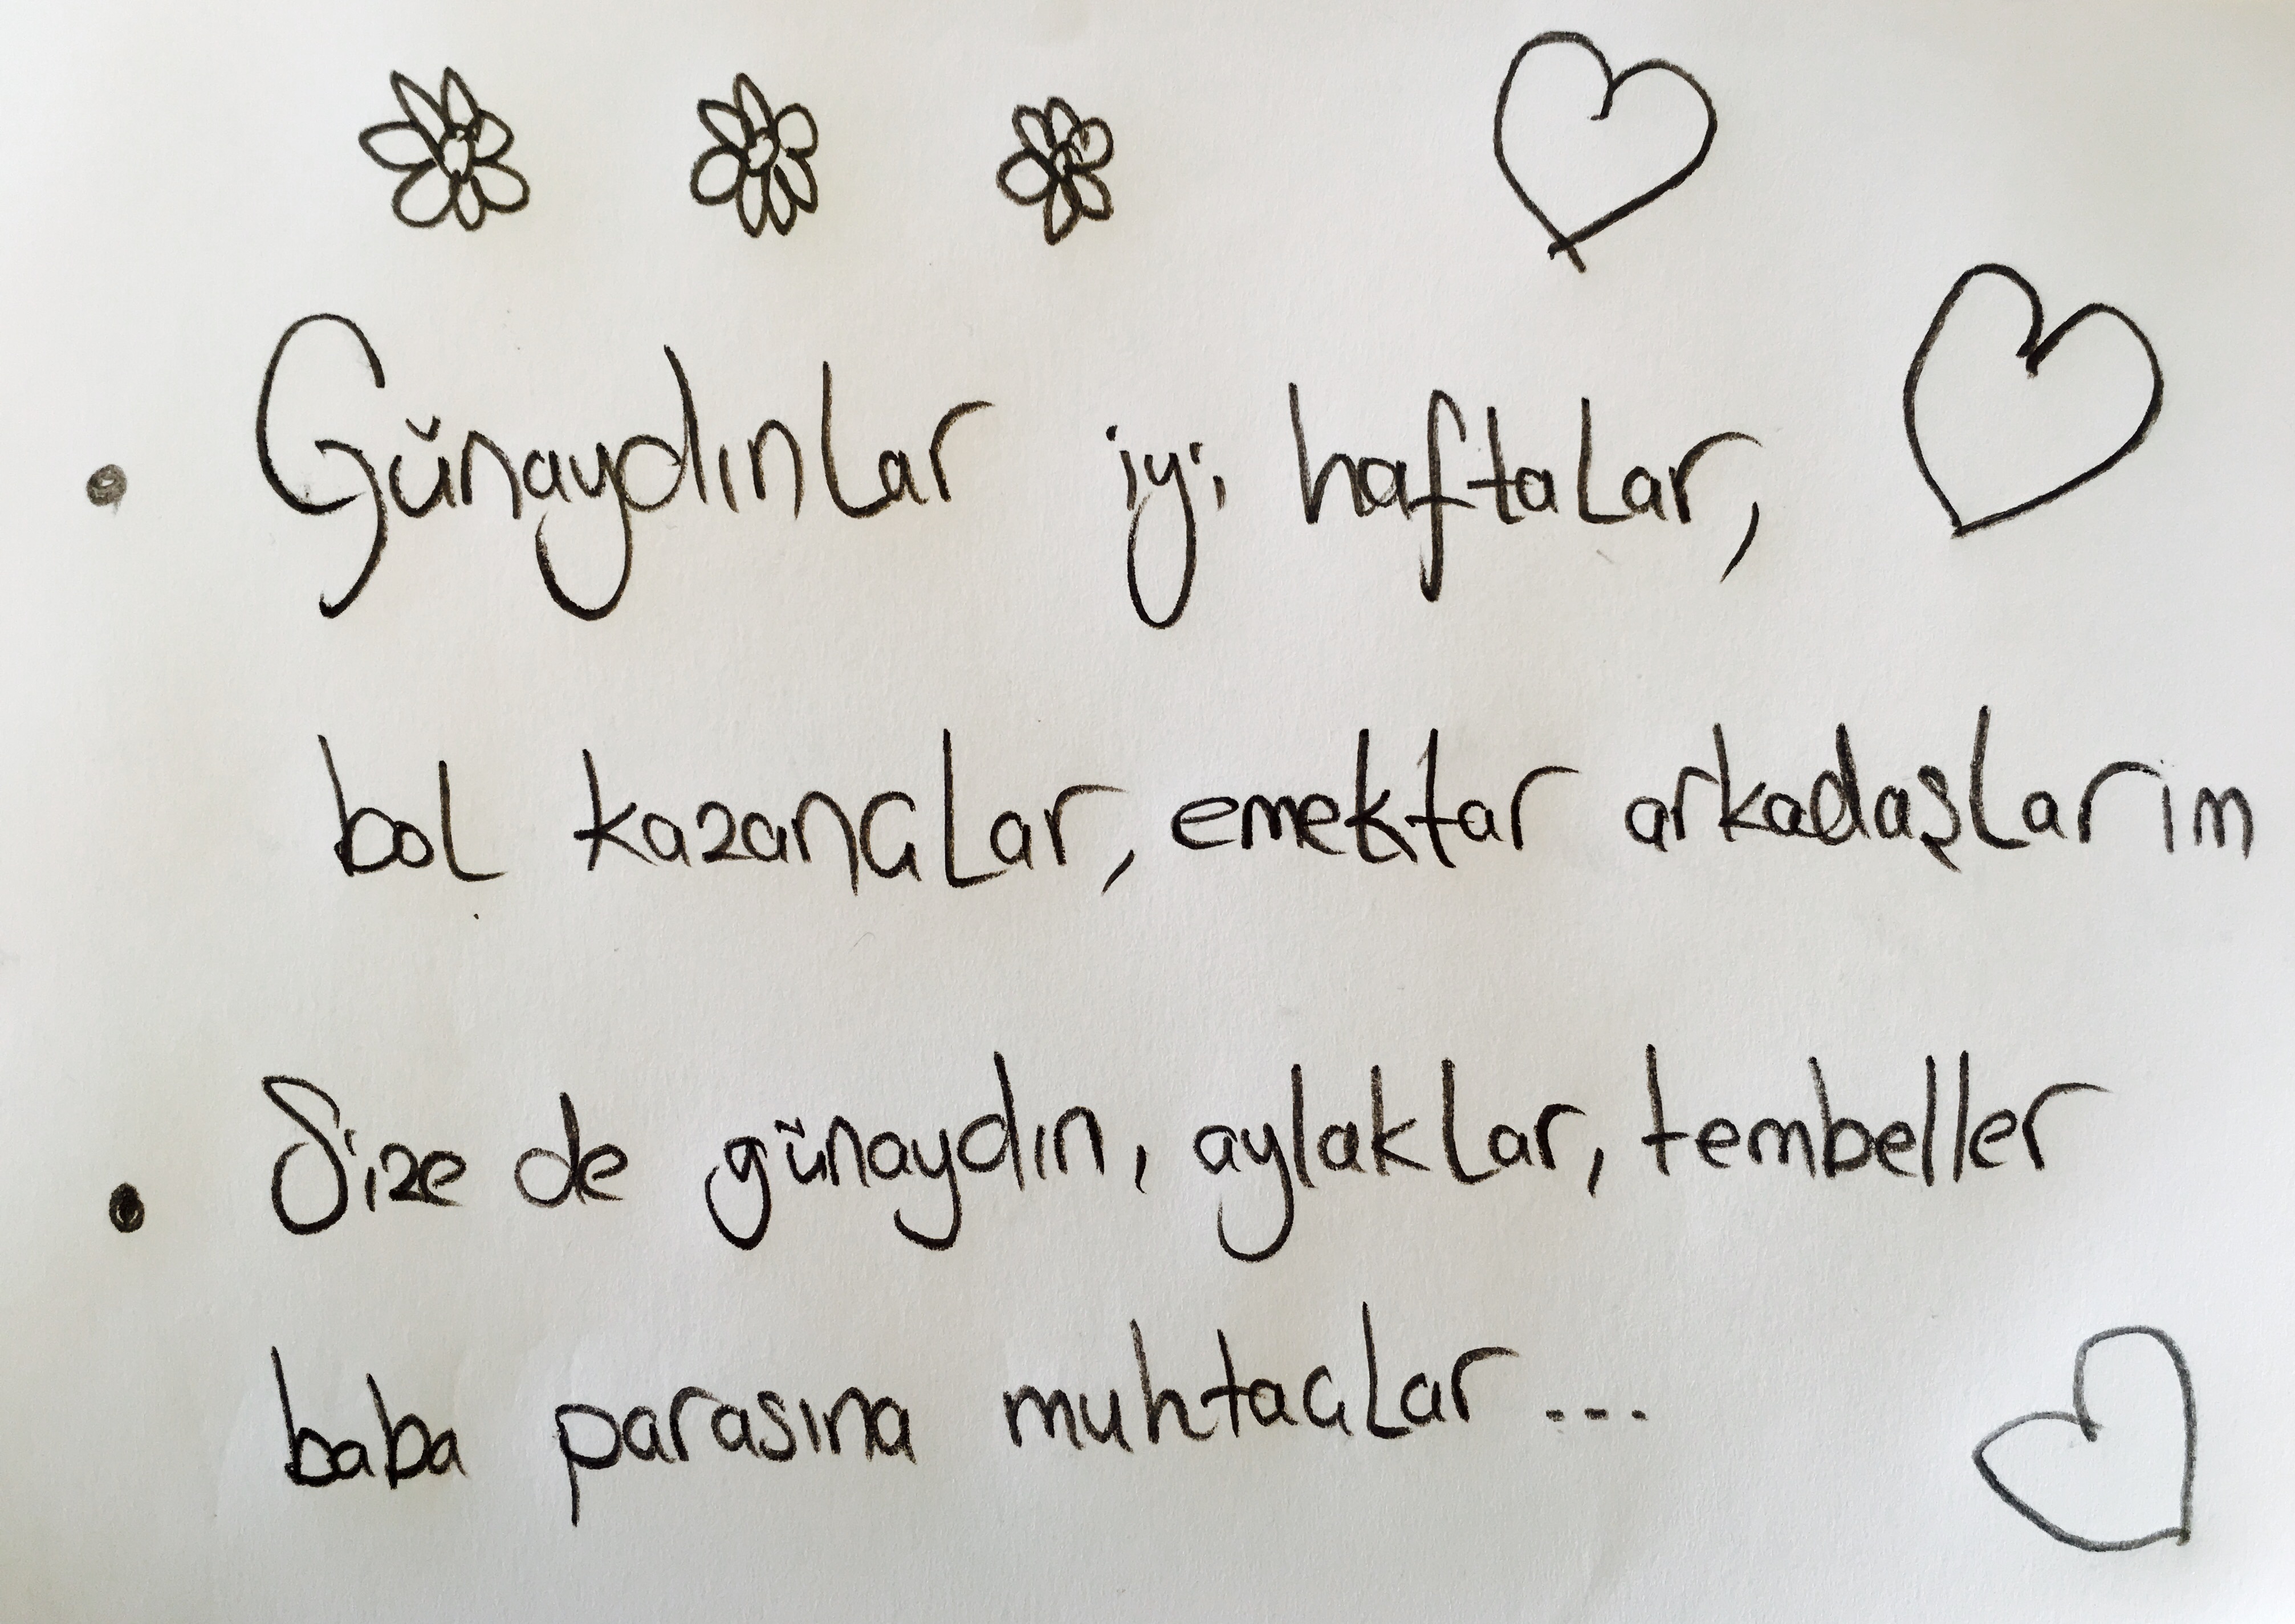 • Günaydınlar iyi haftalar,
bol kazançlar, emektar arkadaşlarım
• Size de günaydın, aylaklar, tembeller
baba parasına muhtaçlar...